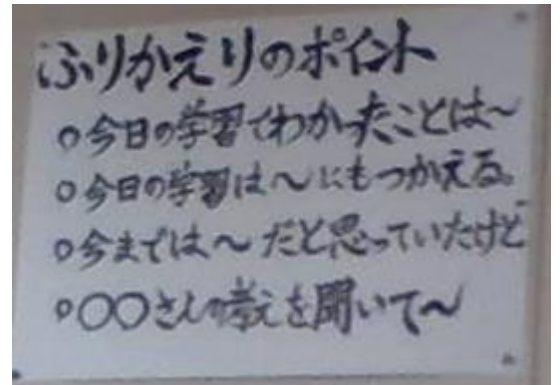 ふりかえりのポイント
○今日の学習でわかったことは〜
○今日の学習は〜にもつかえる。
○今までは〜だと思っていたけど
○○○さんの考えを聞いて〜